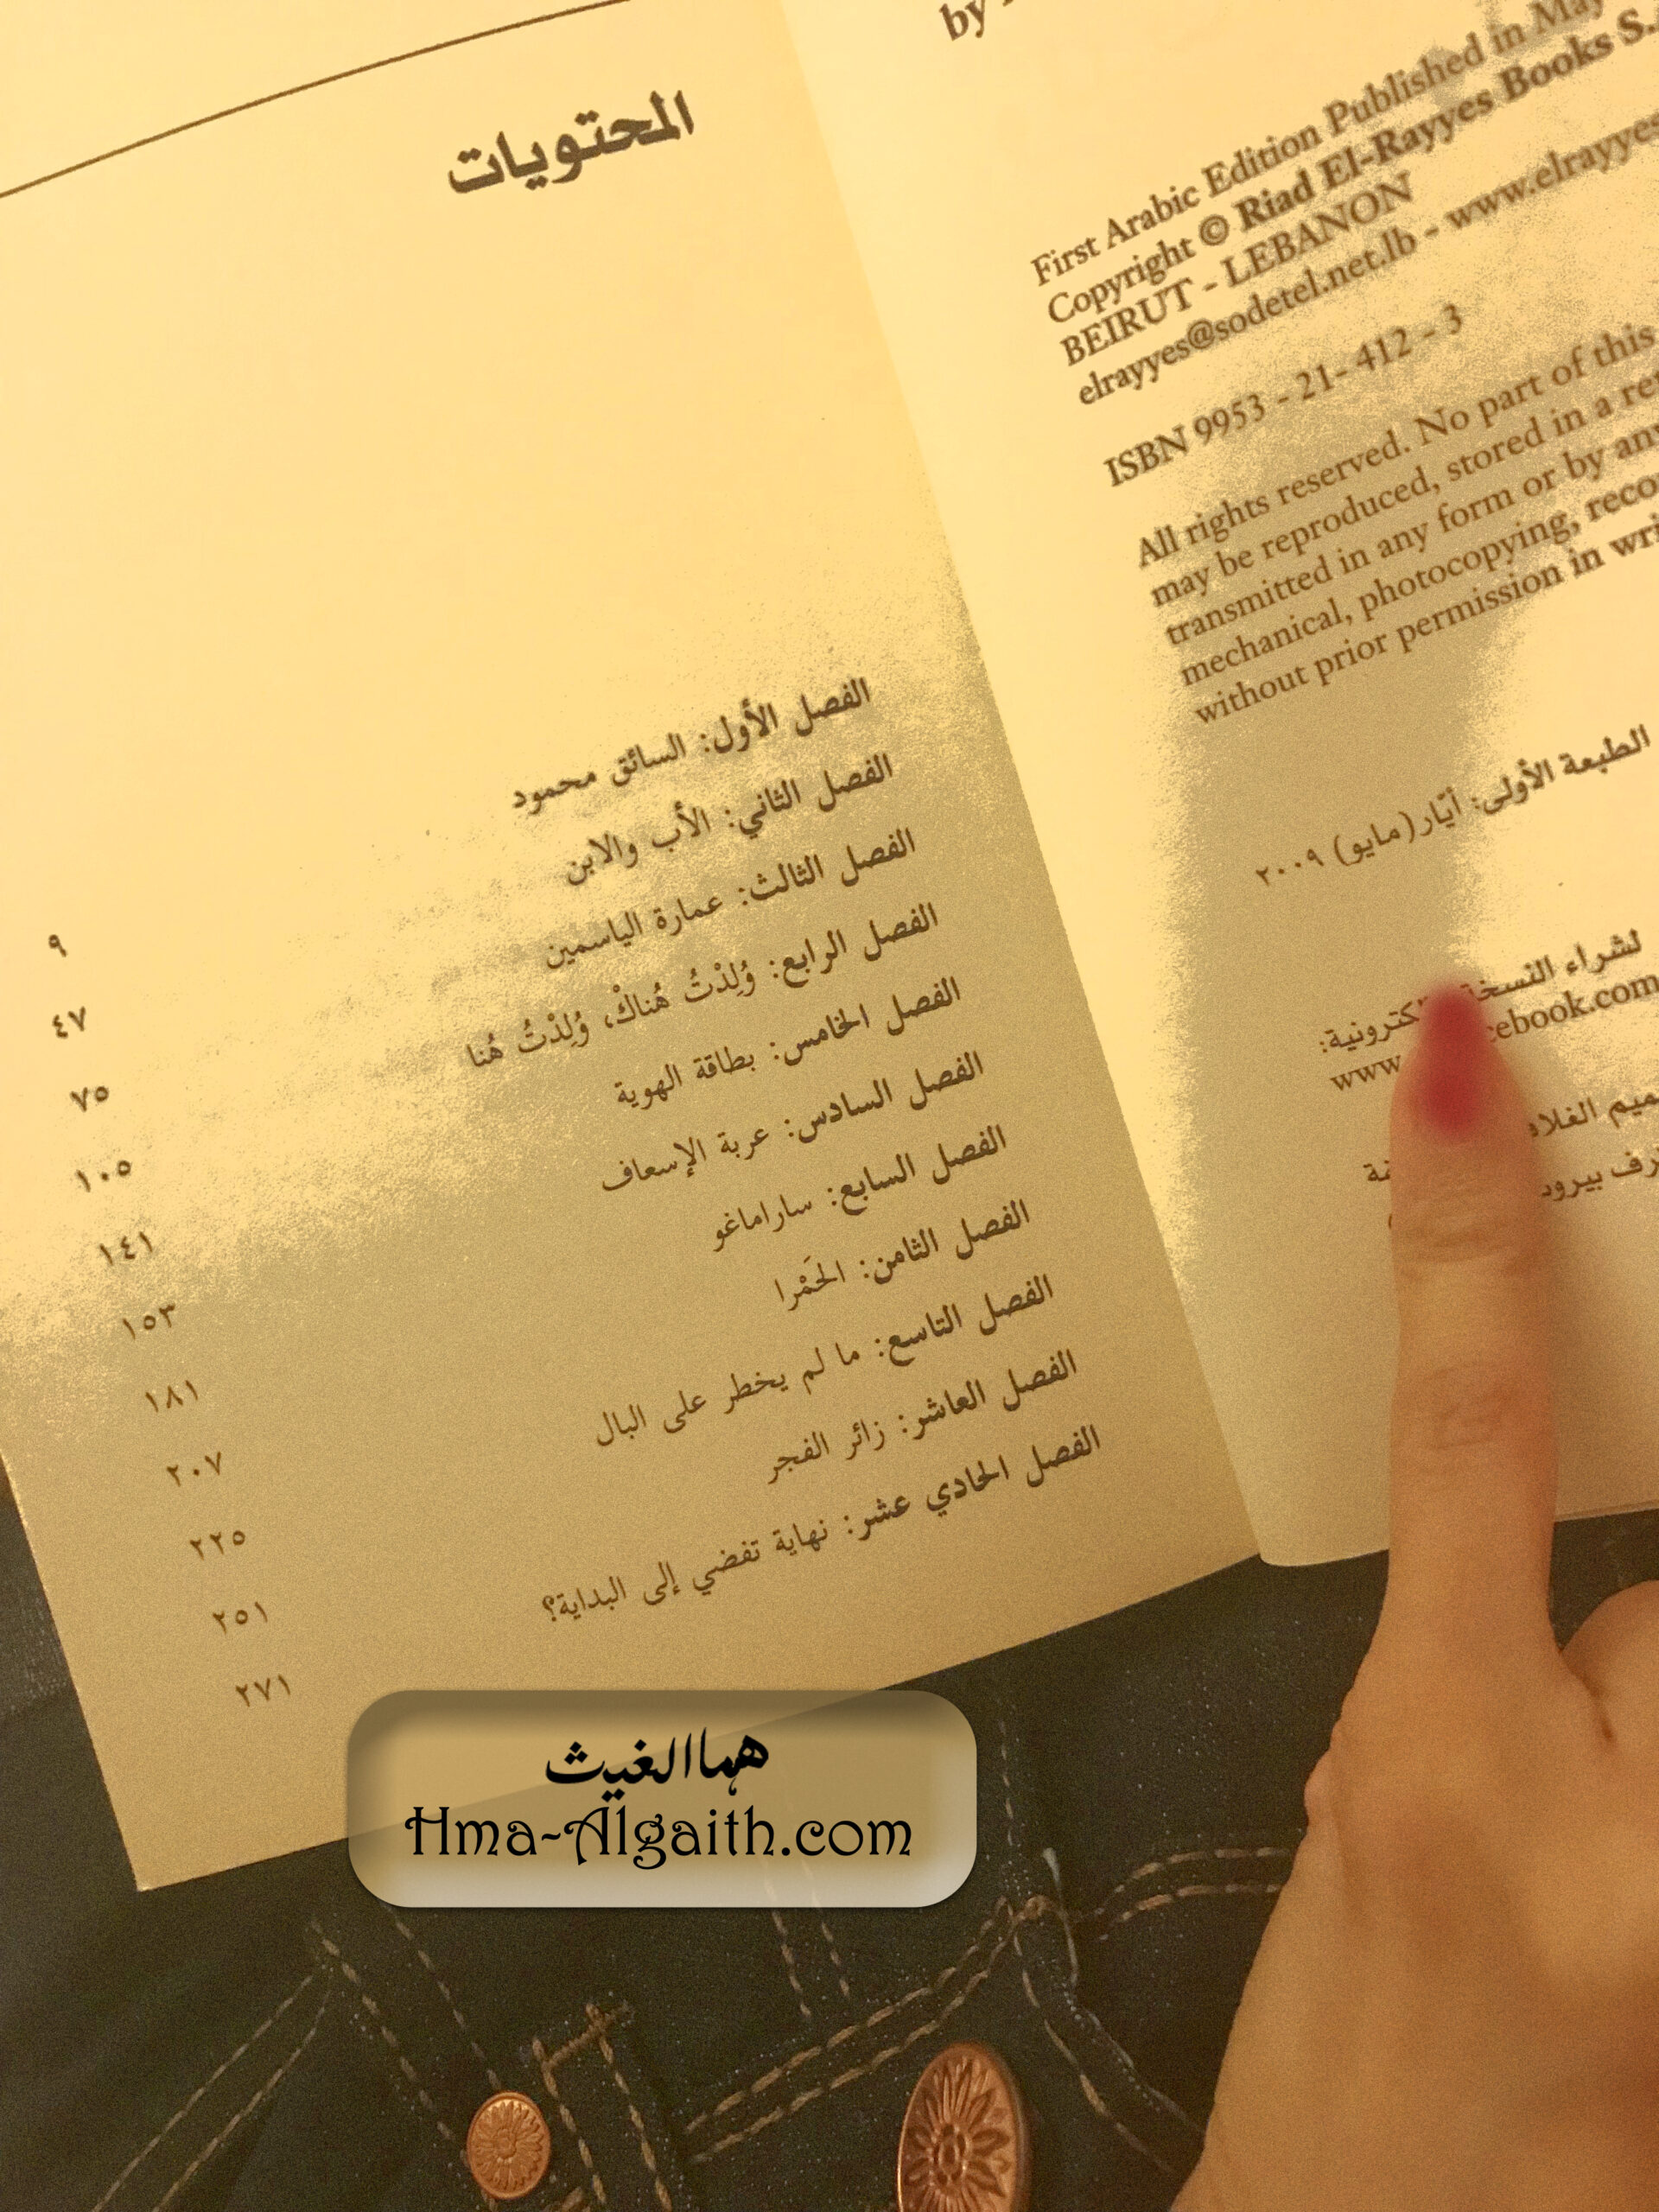 by
First Arabic Edition Published in May
Copyright © Riad El-Rayyes Books S.
BEIRUT - LEBANON
elrayyes@sodetel.net.lb - www.elrayyes
ISBN 9953 - 21- 412 - 3
All rights reserved. No part of this
may be reproduced, stored in a
transmitted in any form or by any
mechanical, photocopying,
without prior permission in
الطبعة الأولى: أيّار (مايو) ٢٠٠٩
لشراء النسخة
www
المحتويات
الفصل الأول: السائق محمود ٩
الفصل الثاني: الأب والابن ٤٧
الفصل الثالث: عمارة الياسمين ٧٥
الفصل الرابع: وُلِدْتُ هُناكْ، وُلِدْتُ هُنا ١٠٥
الفصل الخامس: بطاقة الهوية ١٤١
الفصل السادس: عربة الإسعاف ١٥٣
الفصل السابع: ساراماغو ١٨١
الفصل الثامن: الحَمْرا ٢٠٧
الفصل التاسع: ما لم يخطر على البال ٢٢٥
الفصل العاشر: زائر الفجر ٢٥١
الفصل الحادي عشر: نهاية تفضي إلى البداية؟ ٢٧١
هما الغيث
Hma-Algaith.com